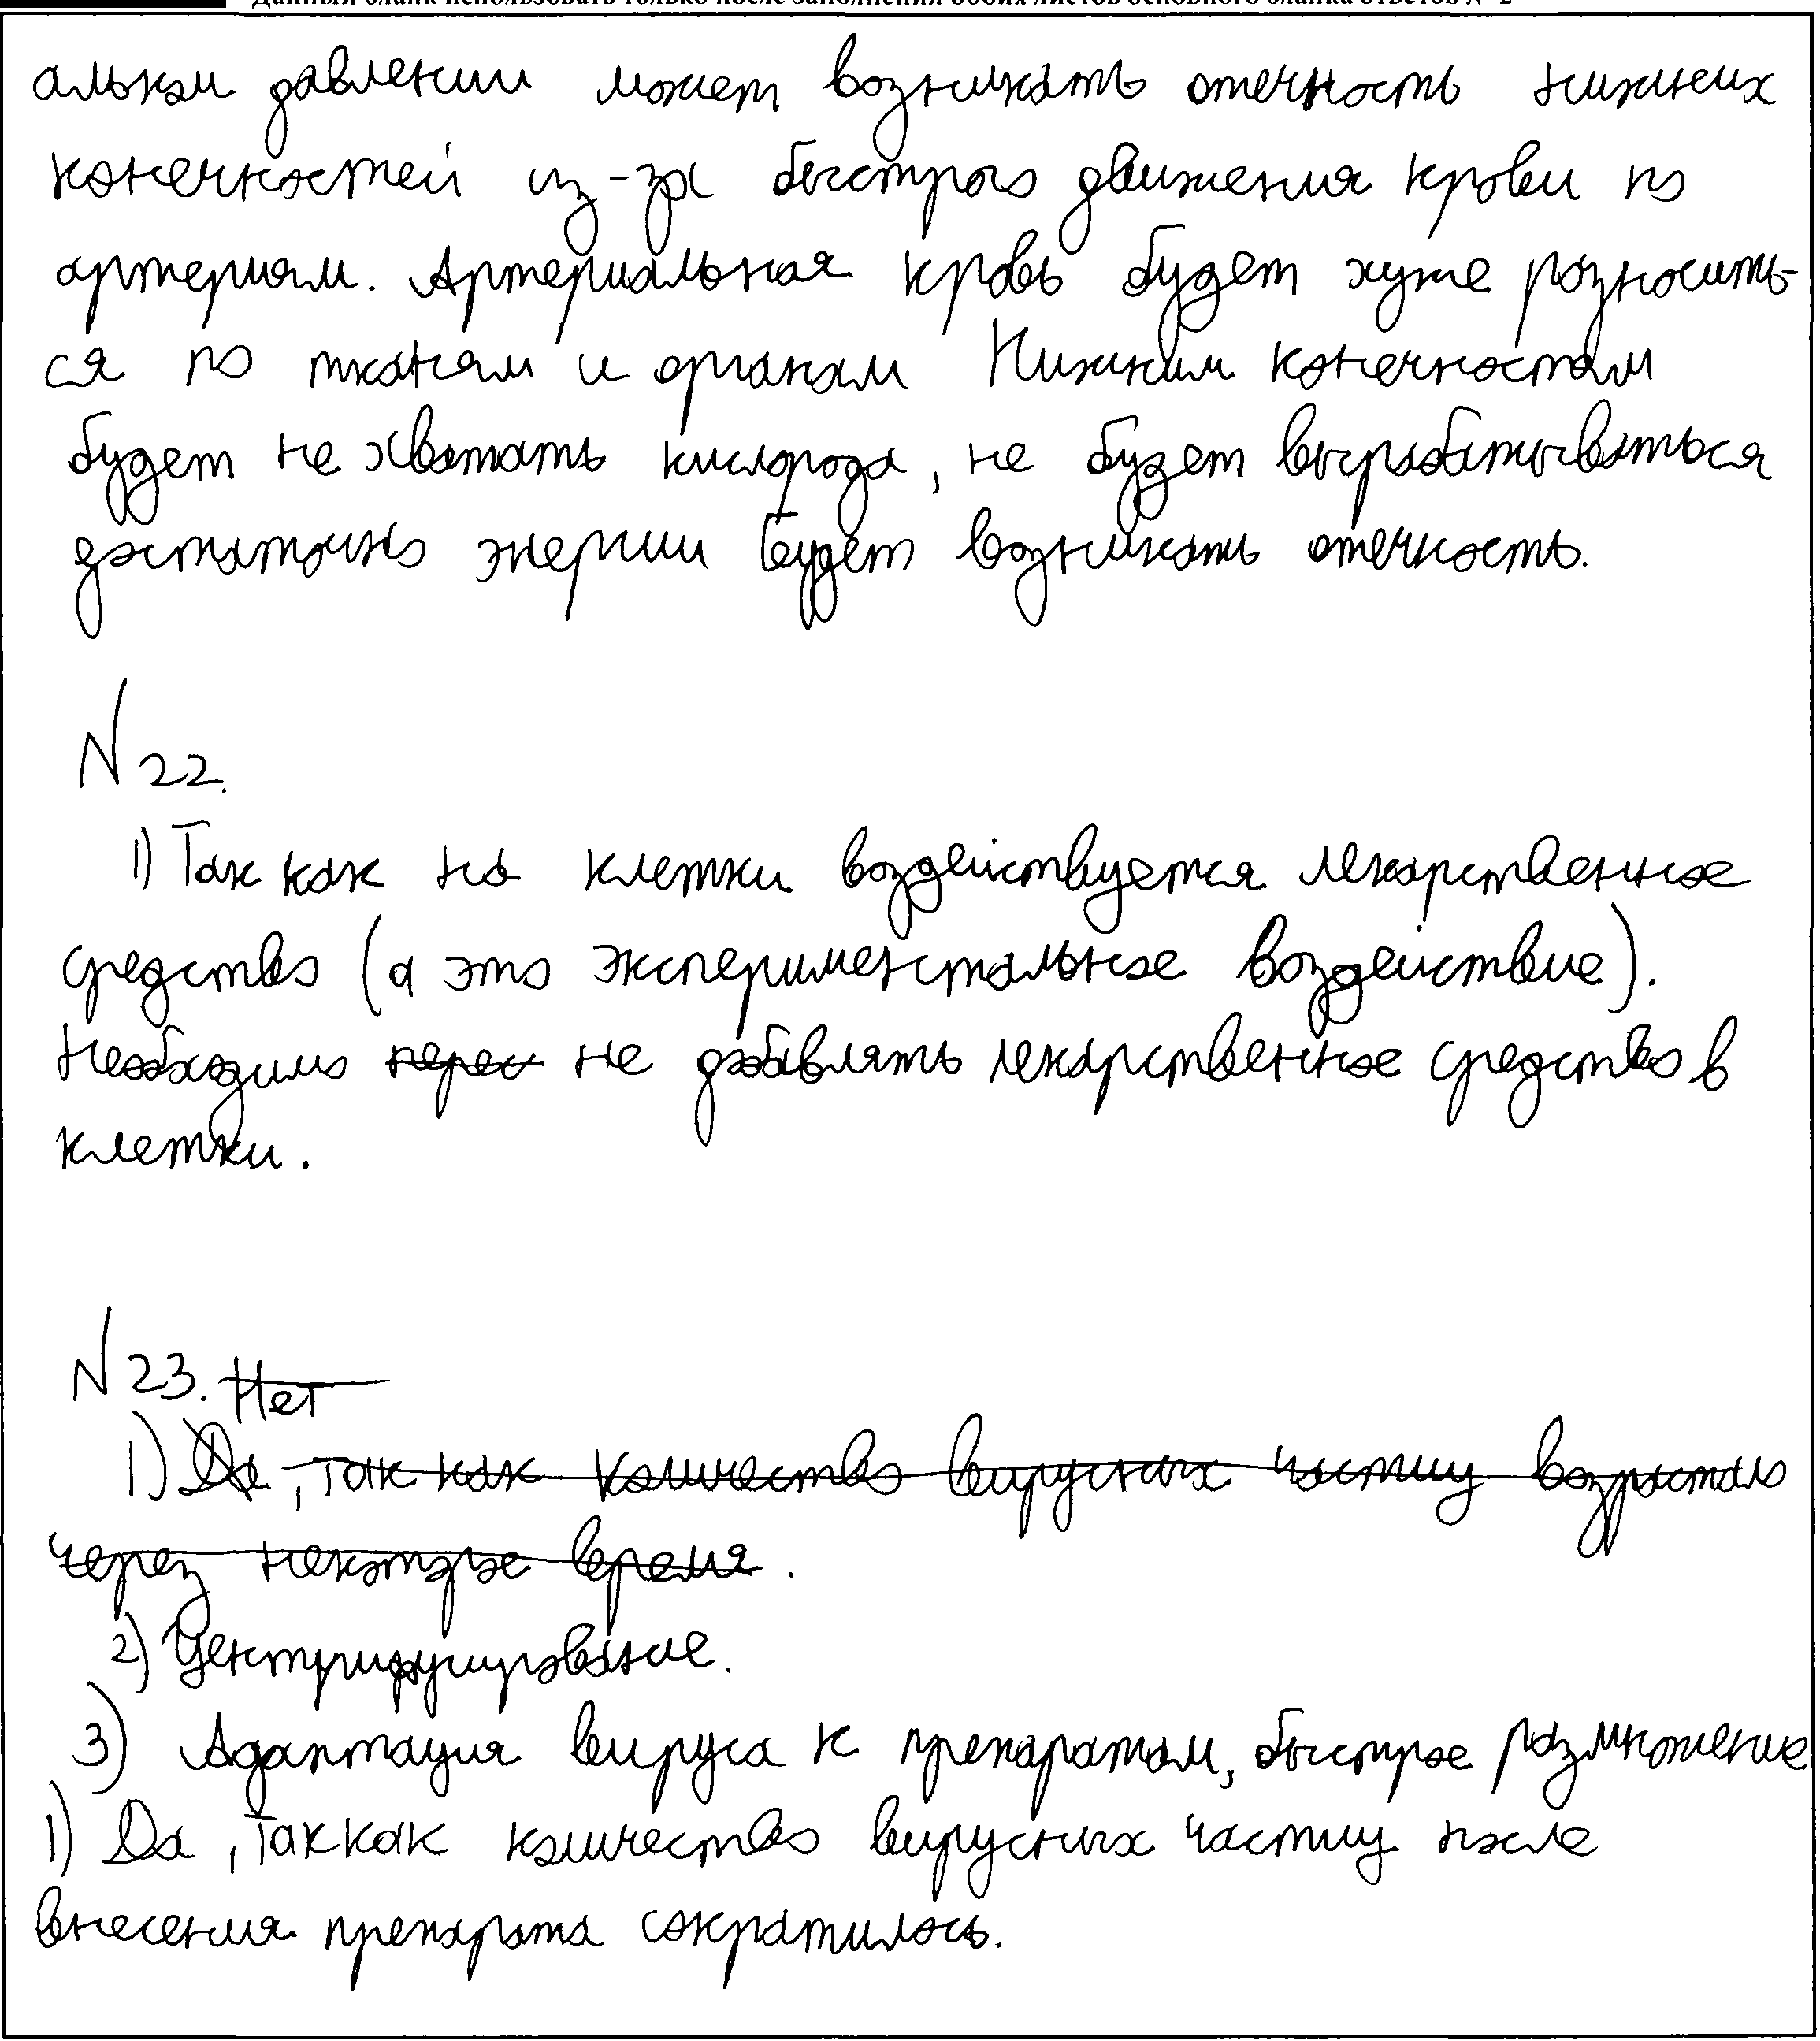 Данный бланк использовать только после заполнения обоих листов основного бланка ответов № 2
альном давлении может возникать отечность нижнеих
конечностей из-за быстрого движения крови по
артериям. Артериальная кровь будет хуже разносить-
ся по тканям и органам Нижним конечностям
будет не хватать кислорода, не будет вырабатываться
достаточно энергии будет возникать отечность.
N 22.
1) Так как на клетки воздействуется лекарственное
средство (а это экспериментальное воздействие).
Необходимо перес не добавлять лекарственное средство в
клетки.
N 23. Нет
1) Да, так как количество вирусных частиц возрастало
через некоторое время.
2) Центрифугирование.
3) Адаптация вируса к препаратам, быстрое размножение
1) Да, так как количество вирусных частиц после
внесения препарата сократилось.